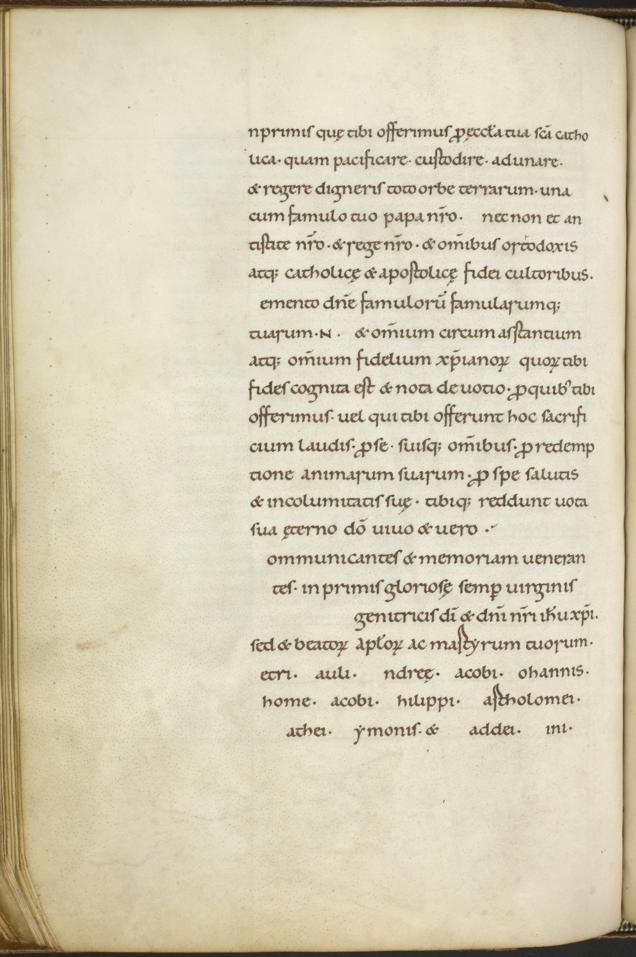 nprimis quę tibi offerimus ꝓęccƚa tua sc̄a catho
lica · quam pacificare · custodire · adunare ·
& regere digneris toto orbe terrarum · una
cum famulo tuo papa nr̄o · nec non et an
tistite nr̄o · & rege nr̄o · & om̄ibus ortodoxis
atq; catholicę & apostolicę fidei cultoribus ·
emento dn̄e famulorū famularumq;
tuarum · N · & om̄ium circum asstantium
atq; om̄ium fidelium xp̄ianoꝝ quoꝝ tibi
fides cognita est & nota deuotio · ꝓ quib' tibi
offerimus · uel qui tibi offerunt hoc sacrifi
cium laudis · ꝓ se · suisq; om̄ibus · ꝓ redemp
tione animarum suarum · ꝓ spe salutis
& incolumitatis suę · tibiq; reddunt uota
sua ęterno dō uiuo & uero ·
ommunicantes & memoriam ueneran
tes · in primis gloriosę semꝑ uirginis
genitricis dī & dn̄i nr̄i ih̄u xp̄i ·
sed & beatoꝝ apƚoꝝ ac martyrum tuorum ·
etri · auli · ndreę · acobi · ohannis ·
home · acobi · hilippi · artholomei ·
athei · ymonis · & addei · ini ·